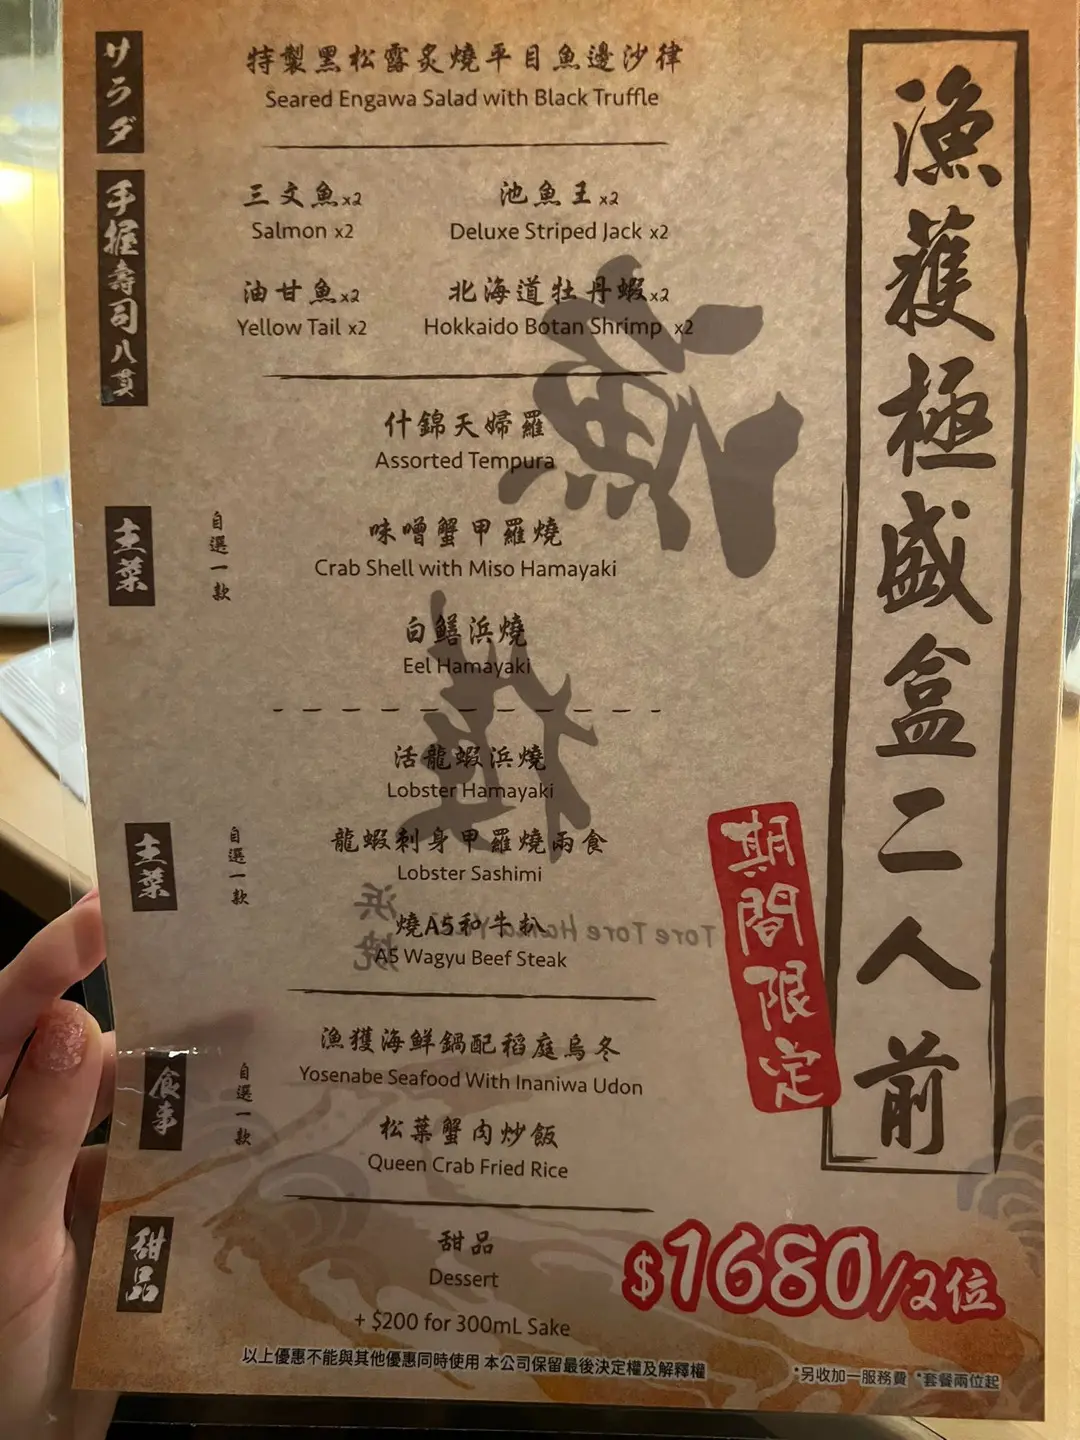 漁獲極盛盒二人前
期間限定
サラダ
特製黑松露炙燒平目魚邊沙律
Seared Engawa Salad with Black Truffle
手握壽司八貫
三文魚x2
Salmon x2
池魚王x2
Deluxe Striped Jack x2
油甘魚x2
Yellow Tail x2
北海道牡丹蝦x2
Hokkaido Botan Shrimp x2
主菜
自選一款
什錦天婦羅
Assorted Tempura
味噌蟹甲羅燒
Crab Shell with Miso Hamayaki
白鱔浜燒
Eel Hamayaki
主菜
自選一款
活龍蝦浜燒
Lobster Hamayaki
龍蝦刺身甲羅燒兩食
Lobster Sashimi
燒A5和牛扒
A5 Wagyu Beef Steak
食事
自選一款
漁獲海鮮鍋配稻庭烏冬
Yosenabe Seafood With Inaniwa Udon
松葉蟹肉炒飯
Queen Crab Fried Rice
甜品
甜品
Dessert
+ $200 for 300mL Sake
$1680/2位
以上優惠不能與其他優惠同時使用 本公司保留最後決定權及解釋權
*另收加一服務費 *套餐兩位起